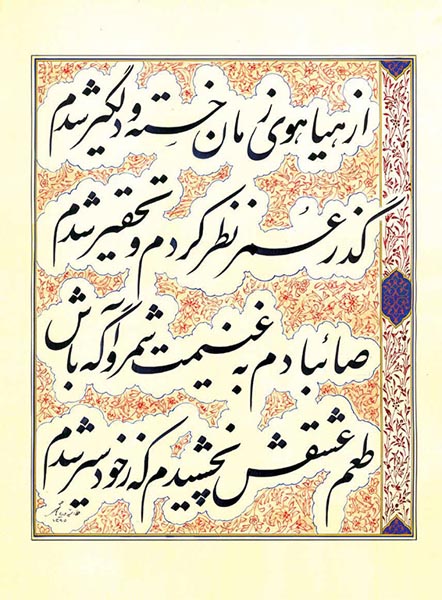 از هیاهوی زمان خسته و دلگیر شدم
گذر عمر نظر کردم و تحقیر شدم
صائبا دم به غنیمت شمر و آگه باش
طعم عشقش نچشیدم که ز خود سیر شدم
۱۳۹۵